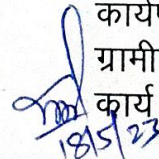 कार्यप
ग्रामी
कार्य
18/5/23